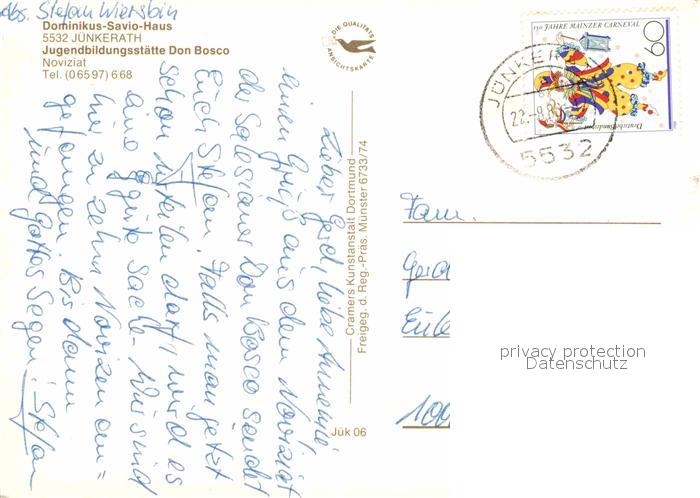 Abs. Stefan Wiersbin
Dominikus-Savio-Haus
5532 JÜNKERATH
Jugendbildungsstätte Don Bosco
Noviziat
Tel. (0 65 97) 6 68
DIE QUALITÄTS
ANSICHTSKARTE
150 JAHRE MAINZER CARNEVAL
60
Deutsche Bundespost
JÜNKERATH
5532
Lieber Gerd, liebe Annemie!
einen Gruß aus dem Noviziat
der Salesianer Don Bosco sendet
Euch Stefan. Falls man jetzt
schon urteilen darf, wird es
eine gute Sache. Wir sind
hier zu zehnt Novizen an=
gefangen. Bis dann
und Gottes Segen! Stefan
Cramers Kunstanstalt Dortmund
Freigeg. d. Reg.-Präs. Münster 6733/74
Jük 06
Fam.
Gera
Eule
100
privacy protection
Datenschutz